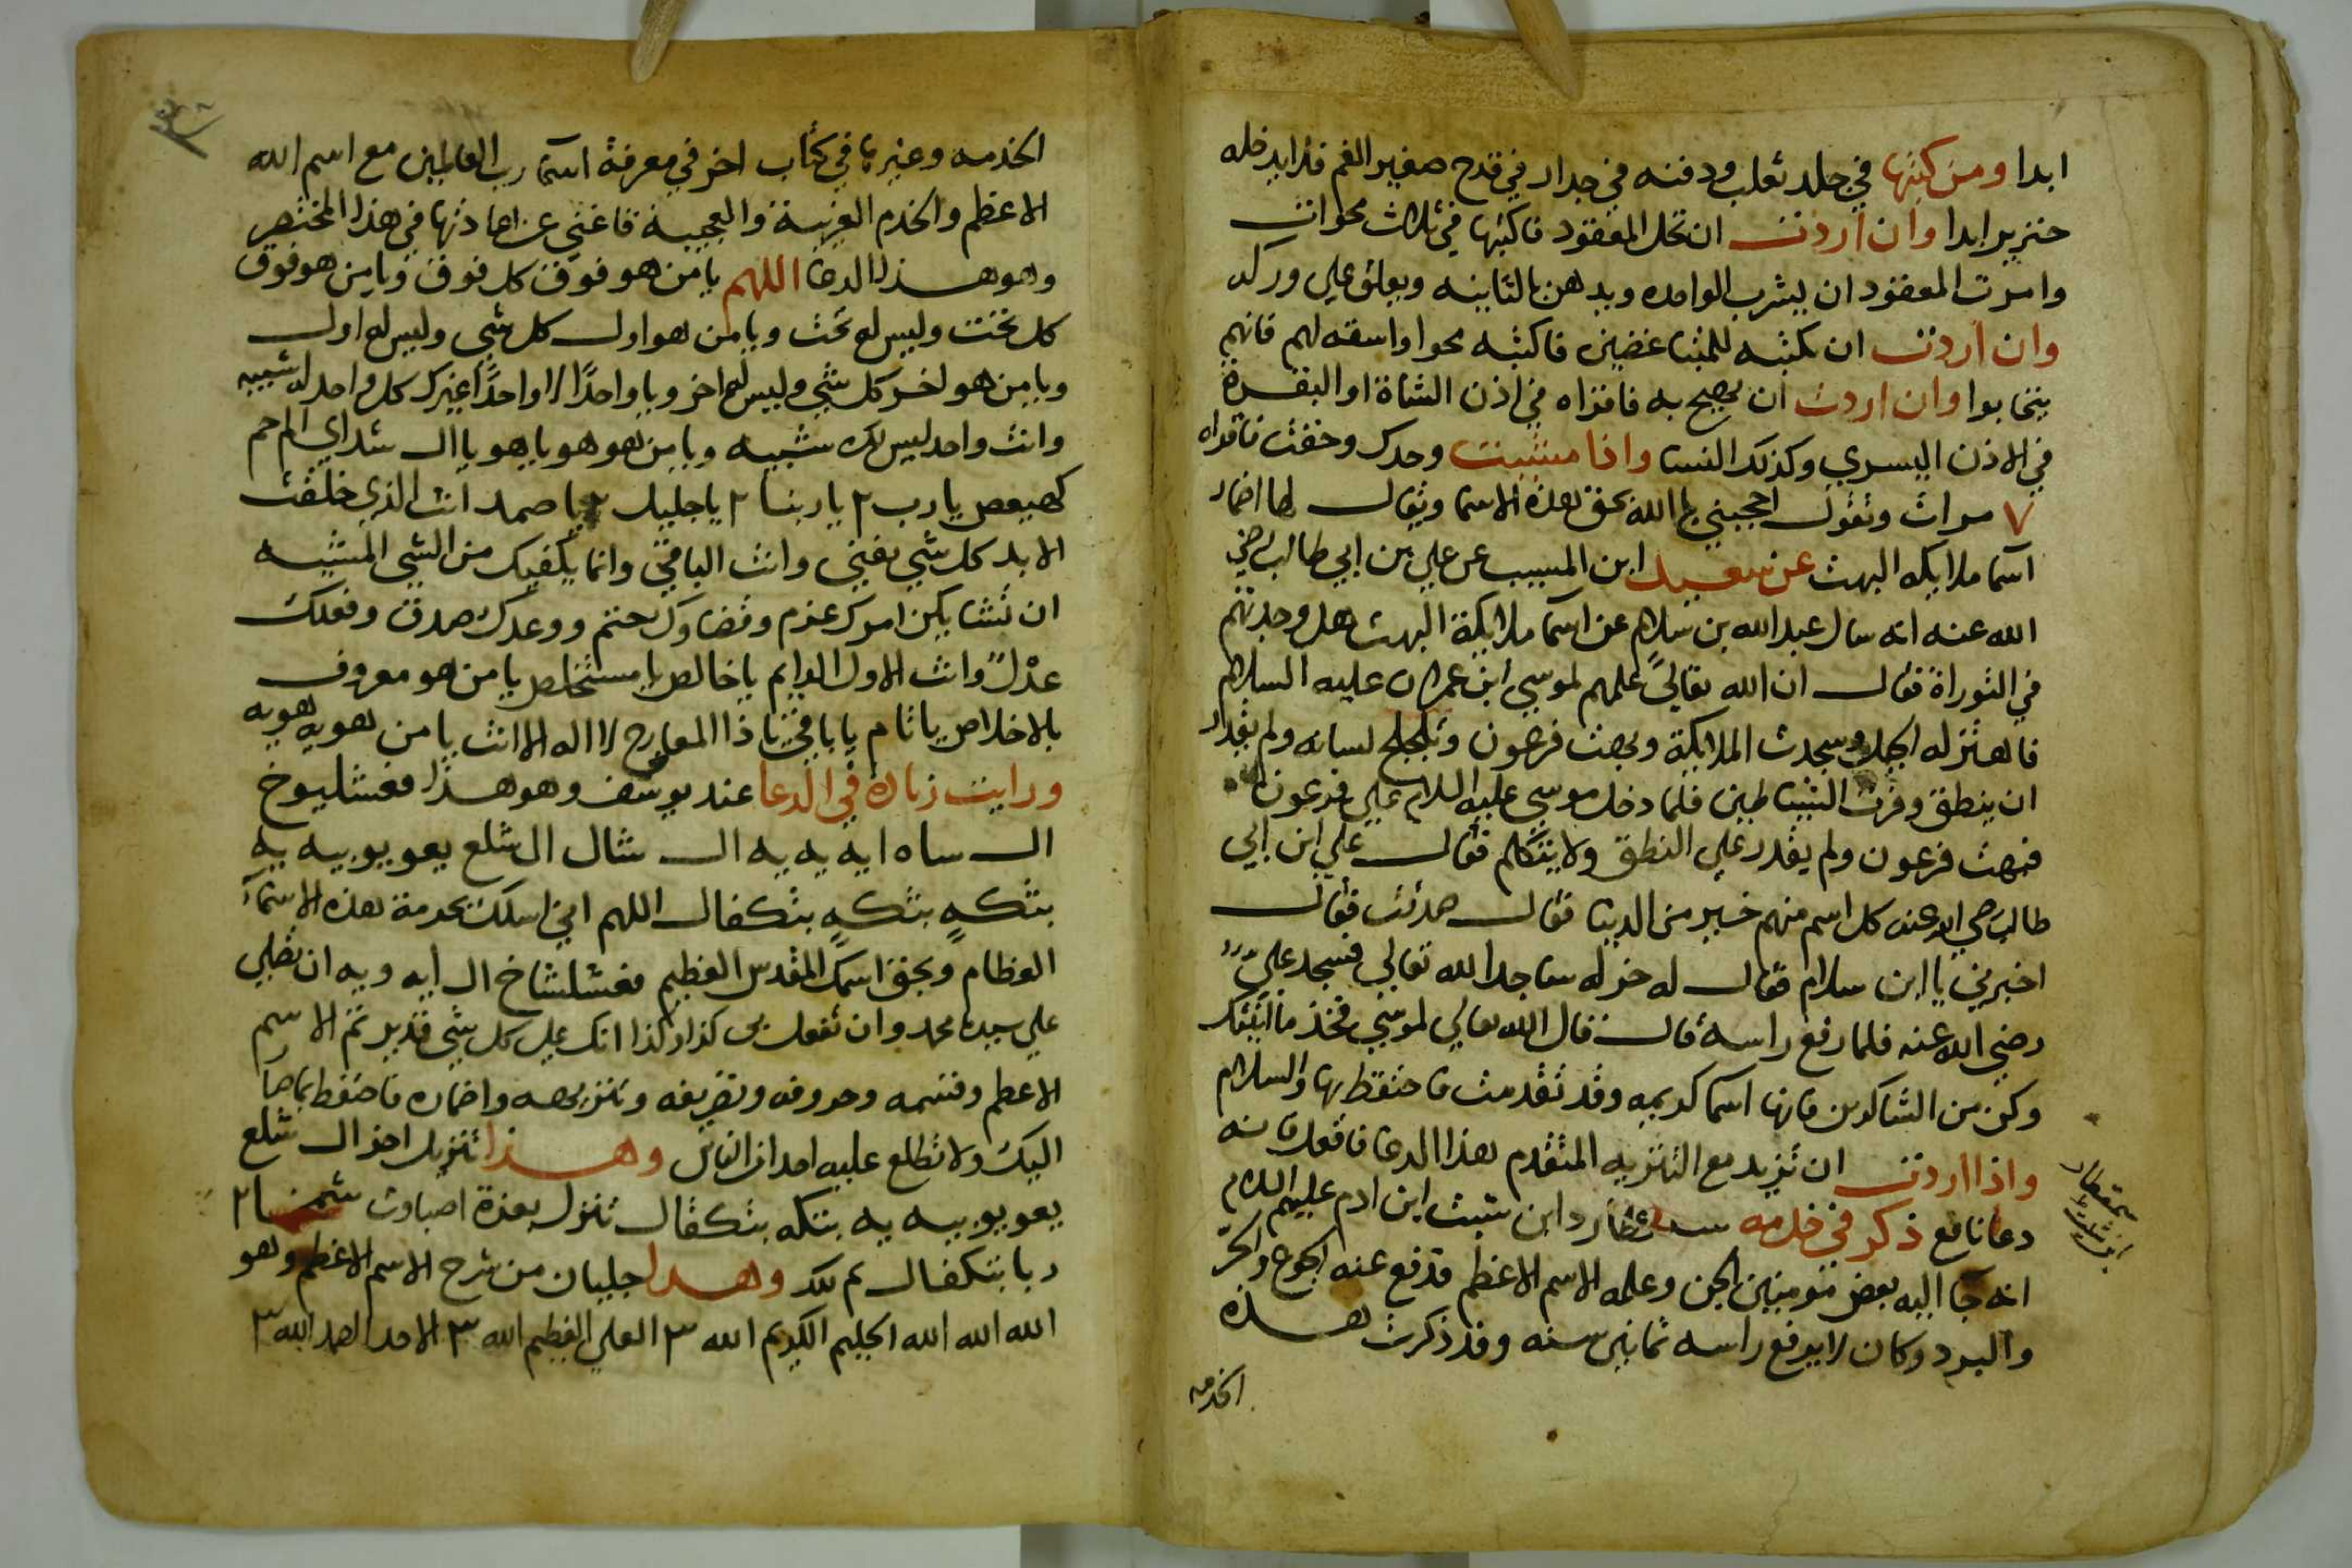 ابدا ومن كتبها في جلد ثعلب ودفنه في جدار في قدح صغير الفم فلا يدخله
خنزير ابدا وان اردت ان تحل المعقود فاكتبها في ثلاث محوات
وامرت المعقود ان يشرب الواحده ويدهن بالثانيه ويعلق علي وركه
وان اردت ان تكتبه للمتباغضين فاكتبه محوا واسقه لهم فانهم
يتحابوا وان اردت ان يصح به فاقراه في اذن الشاة او البقرة
في الاذن اليسري وكذلك النسا واذا مشيت وحدك وخفت فاقراه
٧ مرات وتقول احجبني يا الله بحق هذه الاسما ويقال لها اضمار
اسما ملايكه البهت عن سعيد ابن المسيب عن علي بن ابي طالب رضي
الله عنه انه سال عبد الله بن سلام عن اسما ملايكة البهت هل وجدتهم
في التوراة فقال ان الله تعالي علمهم لموسي ابن عمران عليه السلام
فاهتز له الجبل وسجدت الملايكة وبهت فرعون وتلجلج لسانه ولم يقدر
ان ينطق وفرت الشياطين فلما دخل موسي عليه السلام علي فرعون
فبهت فرعون ولم يقدر علي النطق ولا يتكلم فقال علي ابن ابي
طالب رضي الله عنه كل اسم منهم خير من الدنيا فقال صدقت فقال
اخبرني يا ابن سلام فقال له خر له ساجدا لله تعالي فسجد علي
رضي الله عنه فلما رفع راسه قال قال الله تعالي لموسي فخذ ما اتيتك
وكن من الشاكرين فانها اسما كريمه وقد تقدمت فاحتفظ بها والسلام
واذا اردت ان تزيد مع التنزيه المتقدم هذا الدعا فافعل فانه
دعا نافع ذكر في خدمه عطارد ابن شيث ابن ادم عليهم السلام
انه جا اليه بعض مومنين الجن وعلمه الاسم الاعظم فدفع عنه الجوع والحر
والبرد وكان لا يرفع راسه ثمانين سنه وقد ذكرت هذه
الخدمه
الخدمه وغيرها في كتاب اخر في معرفة اسما رب العالمين مع اسم الله
الاعظم والخدم الغريبة والعجيبة فاغني عن اعادتها في هذا المختصر
وهو هذا الدعا اللهم يا من هو فوق كل فوق ويا من هو فوق
كل تحت وليس له تحت ويا من هو اول كل شي وليس له اول
ويا من هو اخر كل شي وليس له اخر ويا واحدا لا واحدا غيرك كل واحد له شبيه
وانت واحد ليس لك شبيه ويا من هو هو يا هو يا ال شداي الم حم
كهيعص يا رب ٢ يا ربنا ٢ يا جليل ٢ يا صمد انت الذي خلقت
الابد كل شي يفني وانت الباقي وانما يكفيك من الشي المشيه
ان تشا يكن امرك عزم وقضاوك حتم ووعدك صدق وفعلك
عدل وانت الاول الدايم يا خالص يا مستخلص يا من هو معروف
بالاخلاص يا تام يا باقي يا ذا المعارج لا اله الا انت يا من هو يه هو يه
ورايت زياده في الدعا عند يوسف وهو هذا فغشليوخ
ال ساه ايه يه يه ال شال ال شلع يعو يوبيه يه
بتكه بتكه بتكفال اللهم اني اسلك بحرمة هذه الاسماء
العظام وبحق اسمك المقدس العظيم فغشلشاخ ال ايه ويه ان تصلي
علي سيدنا محمد وان تفعل بي كذا وكذا انك علي كل شي قدير تم الاسم
الاعظم وقسمه وحروفه وتصريفه وتنزيهه واضماره فاحتفظ بما صار
اليك ولا تطلع عليه احدا من الناس وهذا تنزيل اخر ال شلع
يعو يوبيه يه بتكه بتكفال تنزل بعزة اصباوت شمخسا ٢
ربا بتكفال تم بك وهذا جلبان من شرح الاسم الاعظم وهو
الله الله الله الحليم الكريم الله ٣ العلي العظيم الله ٣ الاحد الصمد الله ٣